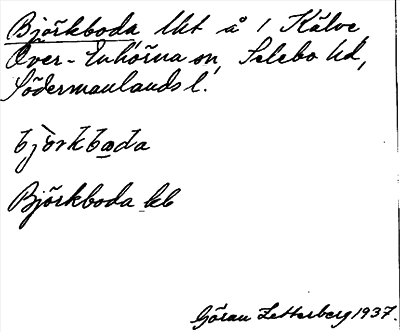 Björkboda, lht å 1 Kälve,
Över-Enhörna sn, Selebo hd,
Södermanlands l.
bjorkbada
Björkboda bb
Göran Zetterberg 1937.